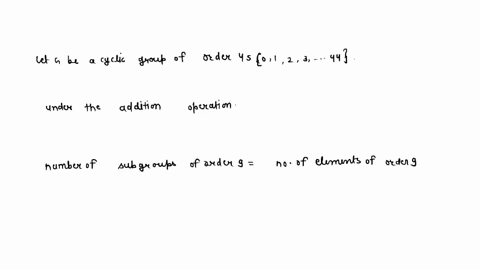 Let G be a cyclic group of order 45 {0, 1, 2, 3, ... 44}.
under the addition operation.
number of subgroups of order 9 = no. of elements of order 9